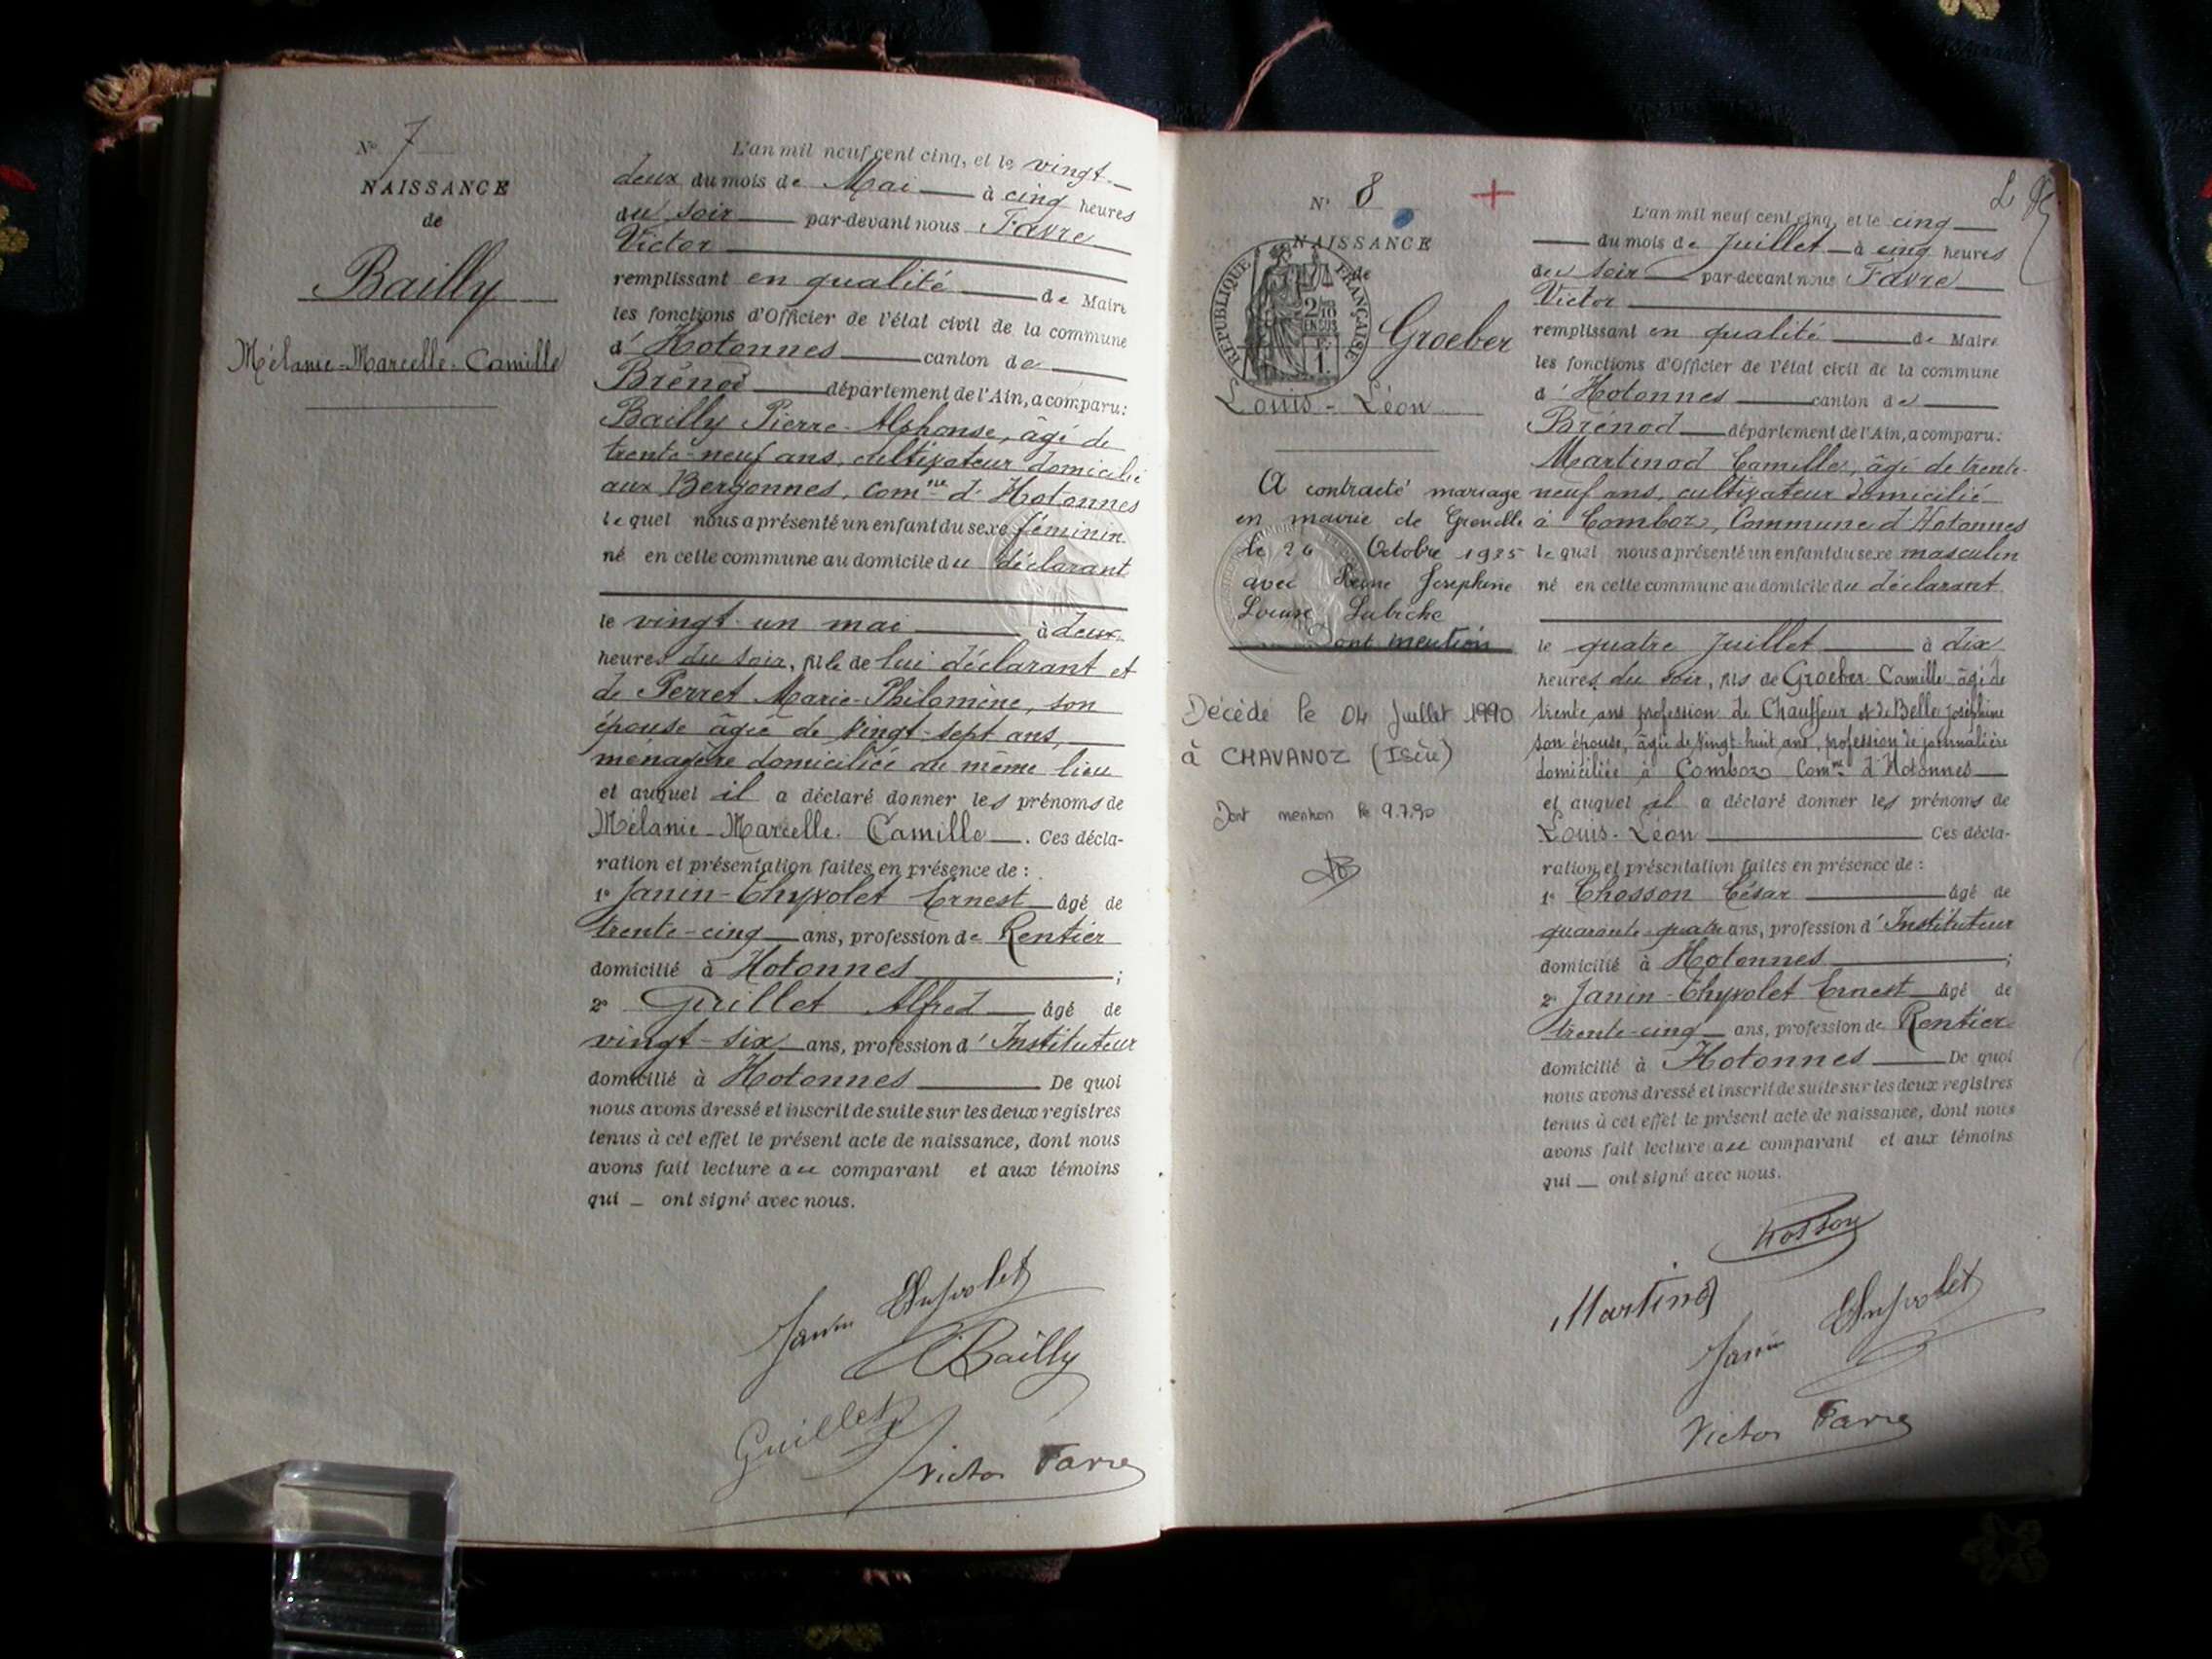 N° 7
NAISSANCE
de
Bailly
Mélanie-Marcelle-Camille
L'an mil neuf cent cinq, et le vingt-
deux du mois de Mai à cinq heures
du soir par-devant nous Favre
Victor
remplissant en qualité de Maire
les fonctions d'Officier de l'état civil de la commune
d' Hotonnes canton de
Brénod département de l'Ain, a comparu:
Bailly Pierre-Alphonse, âgé de
trente-neuf ans, cultivateur domicilié
aux Bergonnes, comne d'Hotonnes
lequel nous a présenté un enfant du sexe féminin
né en cette commune au domicile du déclarant
le vingt-un mai à deux
heures du soir, fille de lui déclarant et
de Perret Marie-Philomène, son
épouse âgée de vingt-sept ans,
ménagère domiciliée au même lieu
et auquel il a déclaré donner les prénoms de
Mélanie-Marcelle-Camille. Ces décla-
ration et présentation faites en présence de :
1° Janin-Thyvolet Ernest âgé de
trente-cinq ans, profession de Rentier
domicilié à Hotonnes ;
2° Guillet Alfred âgé de
vingt-six ans, profession d' Instituteur
domicilié à Hotonnes De quoi
nous avons dressé et inscrit de suite sur les deux registres
tenus à cet effet le présent acte de naissance, dont nous
avons fait lecture au comparant et aux témoins
qui ont signé avec nous.
Janin Thyvolet
Bailly
Guillet
Victor Favre
N° 8
NAISSANCE
de
RÉPUBLIQUE FRANÇAISE
2/10 EN SUS
1
Groeber
Louis-Léon
A contracté mariage
en mairie de Grenelle
le 26 Octobre 1935
avec Reine Josephine
Louise Labiche
Dont mention
Décédé le 04 Juillet 1990
à CHAVANOZ (Isère)
Dont mention le 9.7.90
L'an mil neuf cent cinq, et le cinq
du mois de Juillet à cinq heures
du soir par-devant nous Favre
Victor
remplissant en qualité de Maire
les fonctions d'Officier de l'état civil de la commune
d' Hotonnes canton de
Brénod département de l'Ain, a comparu:
Martinod Camille, âgé de trente-
neuf ans, cultivateur domicilié
à Comboz, Commune d'Hotonnes
lequel nous a présenté un enfant du sexe masculin
né en cette commune au domicile du déclarant
le quatre Juillet à dix
heures du soir, fils de Groeber Camille âgé de
trente ans profession de Chauffeur et de Belle Joséphine
son épouse, âgée de vingt-huit ans, profession de journalière
domiciliée à Comboz Comne d'Hotonnes
et auquel il a déclaré donner les prénoms de
Louis-Léon Ces décla-
ration et présentation faites en présence de :
1° Chosson César âgé de
quarante-quatre ans, profession d'Instituteur
domicilié à Hotonnes ;
2° Janin-Thyvolet Ernest âgé de
trente-cinq ans, profession de Rentier
domicilié à Hotonnes De quoi
nous avons dressé et inscrit de suite sur les deux registres
tenus à cet effet le présent acte de naissance, dont nous
avons fait lecture au comparant et aux témoins
qui ont signé avec nous.
Chosson
Martinod
Janin Thyvolet
Victor Favre